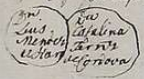 Dn
Luis
Mendez
de Haro
Da
Catalina
Fernz
de Cordova